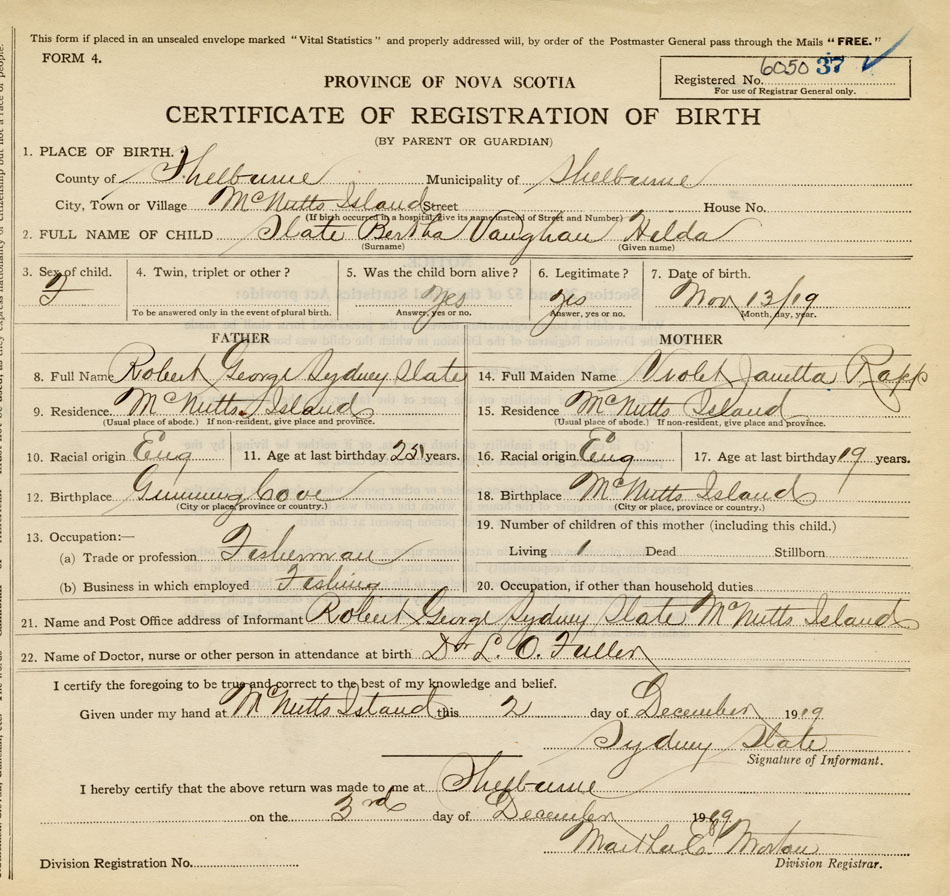 This form if placed in an unsealed envelope marked "Vital Statistics" and properly addressed will, by order of the Postmaster General pass through the Mails "FREE."
FORM 4.
6050 37
Registered No.
For use of Registrar General only.
PROVINCE OF NOVA SCOTIA
CERTIFICATE OF REGISTRATION OF BIRTH
(BY PARENT OR GUARDIAN)
1. PLACE OF BIRTH.
County of Shelburne Municipality of Shelburne
City, Town or Village McNutts Island Street House No.
(If birth occurred in a hospital, give its name instead of Street and Number)
2. FULL NAME OF CHILD Slate Bertha Vaughan Helda
(Surname) (Given name)
3. Sex of child. 4. Twin, triplet or other? 5. Was the child born alive? 6. Legitimate? 7. Date of birth.
F Yes Yes Nov 13/19
To be answered only in the event of plural birth. Answer, yes or no. Answer, yes or no. Month, day, year.
FATHER MOTHER
8. Full Name Robert George Sydney Slate 14. Full Maiden Name Violet Janetta Rapp
9. Residence. McNutts Island 15. Residence McNutts Island
(Usual place of abode.) If non-resident, give place and province. (Usual place of abode.) If non-resident, give place and province.
10. Racial origin Eng 11. Age at last birthday 25 years. 16. Racial origin Eng 17. Age at last birthday 19 years.
12. Birthplace Gunning Cove 18. Birthplace McNutts Island
(City or place, province or country.) (City or place, province or country.)
13. Occupation:— 19. Number of children of this mother (including this child.)
(a) Trade or profession Fisherman Living 1 Dead Stillborn
(b) Business in which employed Fishing 20. Occupation, if other than household duties
21. Name and Post Office address of Informant Robert George Sydney Slate McNutts Island
22. Name of Doctor, nurse or other person in attendance at birth Dr L. O. Fuller
I certify the foregoing to be true and correct to the best of my knowledge and belief.
Given under my hand at McNutts Island this 2 day of December 1919
Sydney Slate
Signature of Informant.
I hereby certify that the above return was made to me at Shelburne
on the 3rd day of December 1919
Martha E. Morton
Division Registration No. Division Registrar.